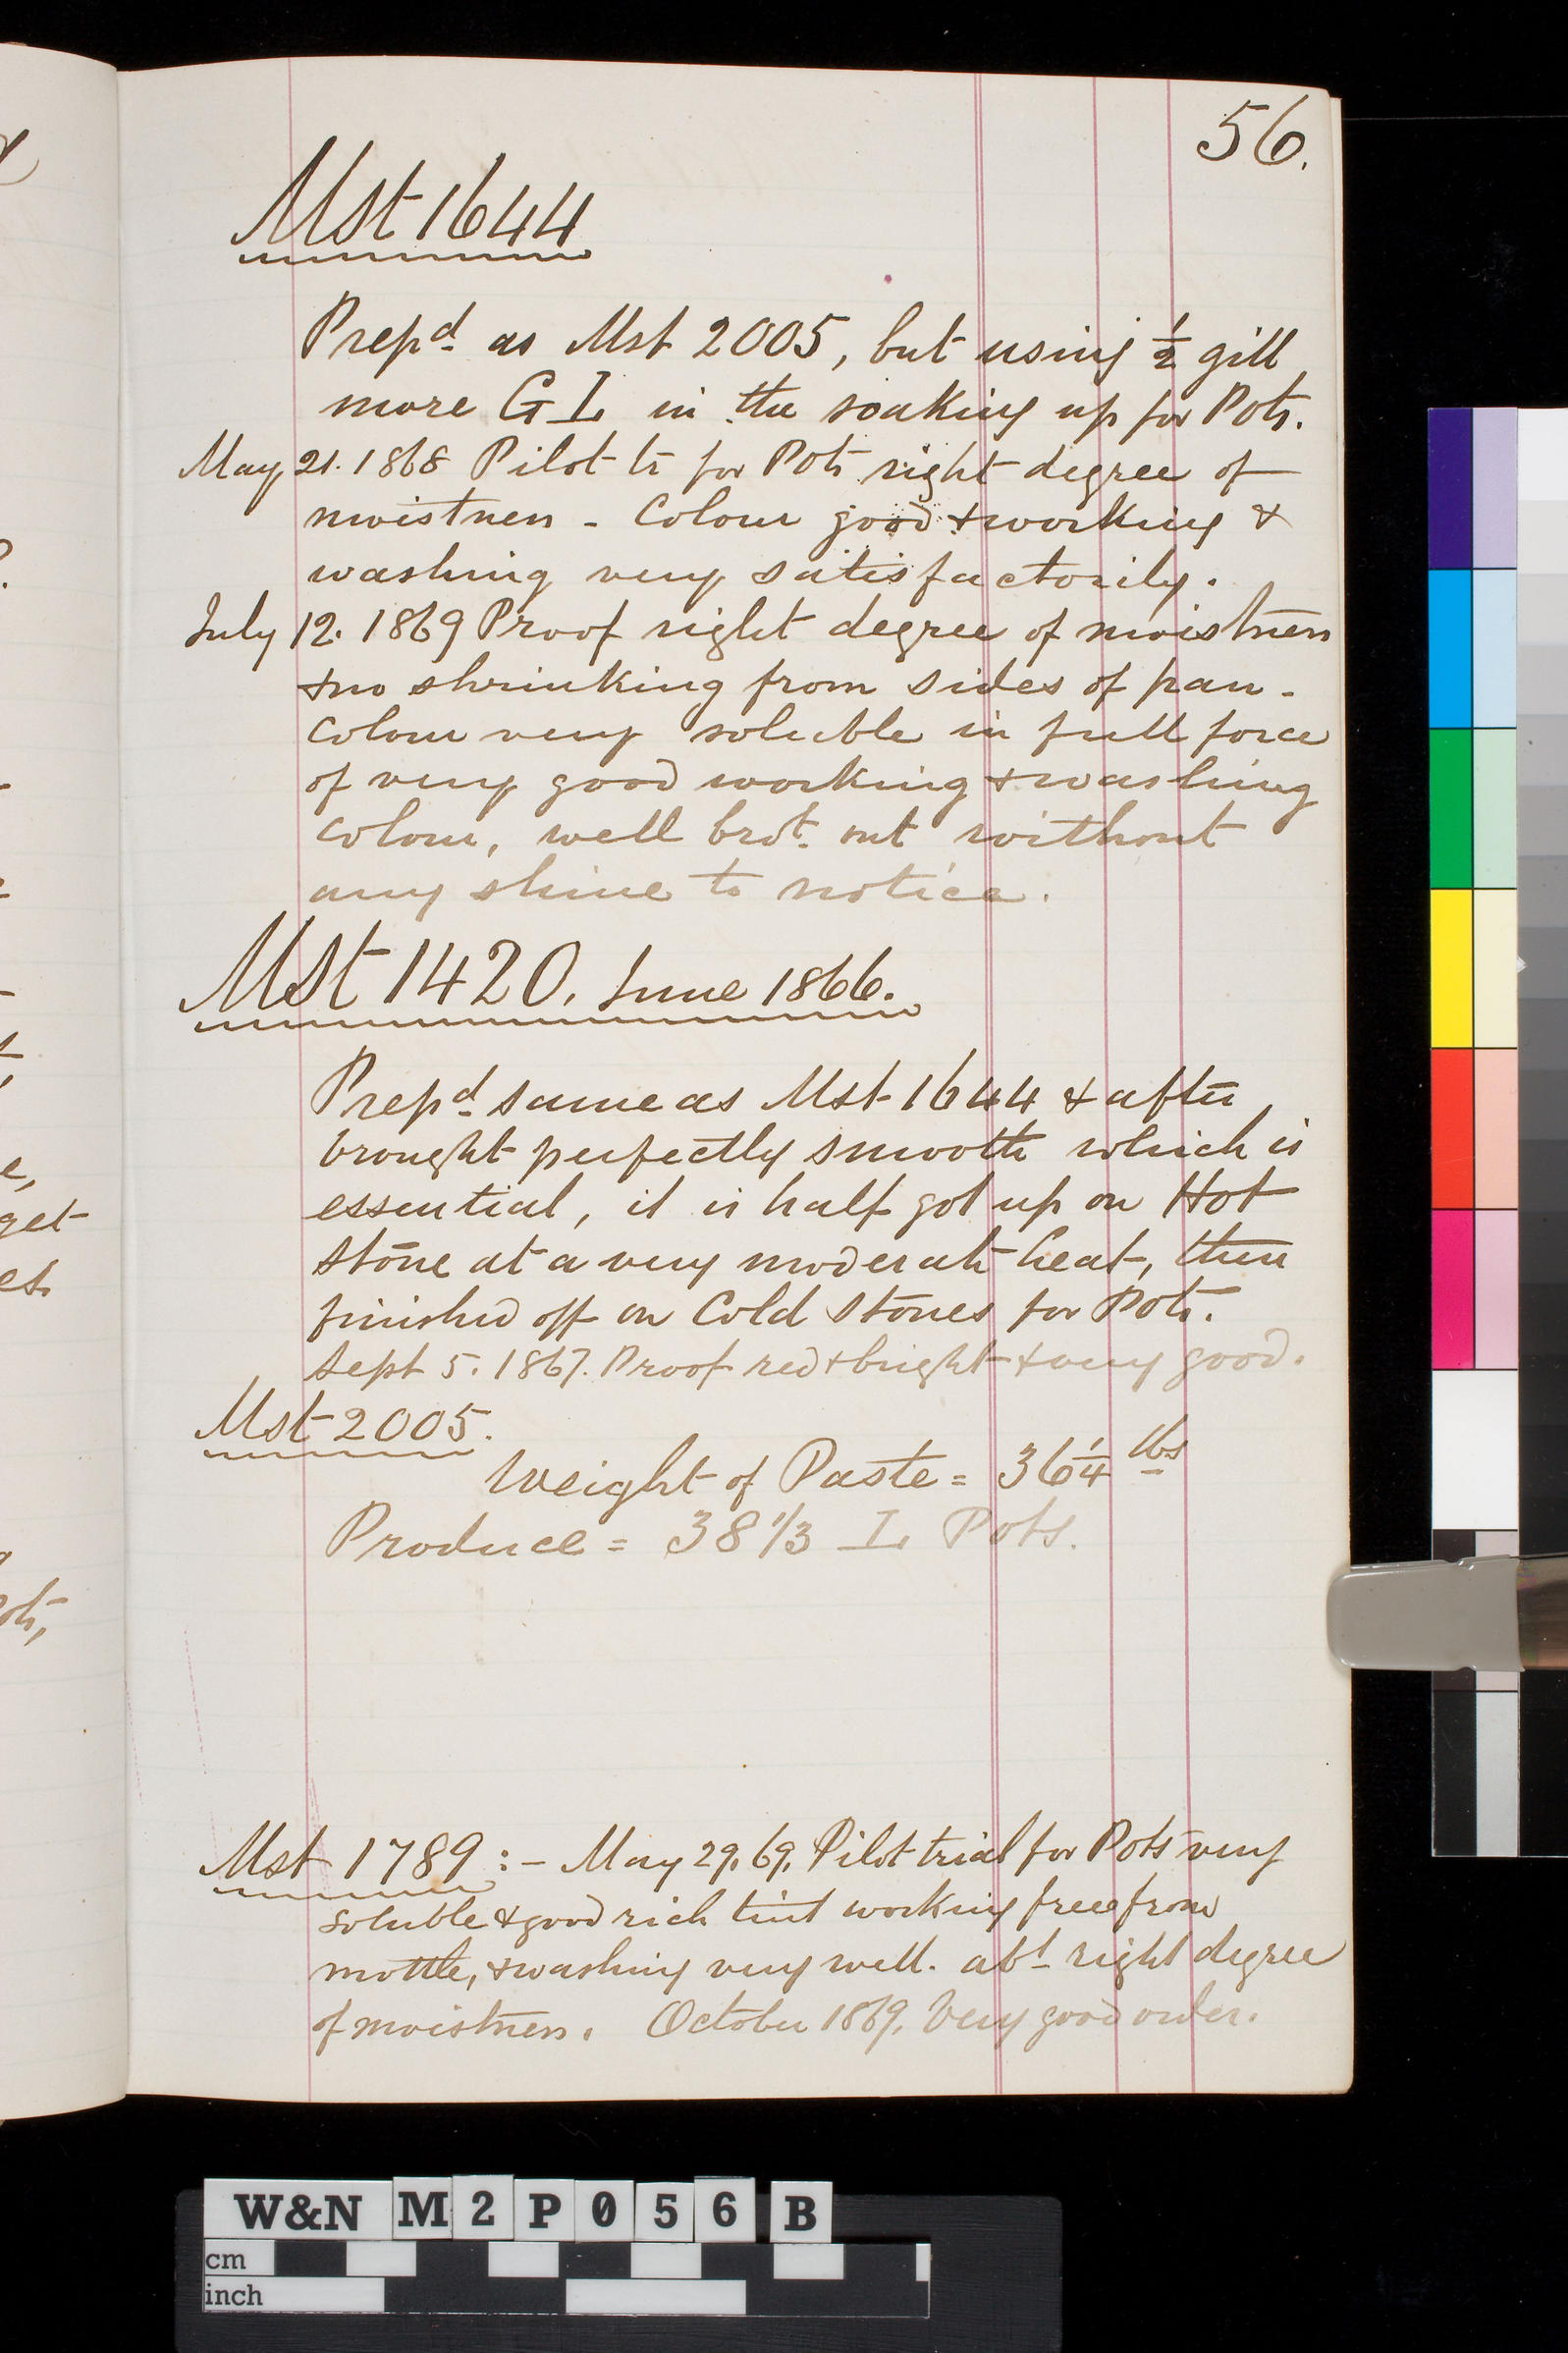 56.
Mst 1644
Prepd as Mst 2005, but using 1/2 gill
more G L in the soaking up for Pots.
May 21. 1868 Pilot tr for Pots right degree of
moistness - Colour good & working &
washing very satisfactorily.
July 12. 1869 Proof right degree of moistness
& no shrinking from sides of pan -
Colour very soluble in full force
of very good working & washing
colour, well brot. out without
any shine to notice.
Mst 1420. June 1866.
Prepd same as Mst 1644 & after
brought perfectly smooth which is
essential, it is half got up on Hot
Stone at a very moderate heat, then
finished off on Cold Stones for Pots.
Sept 5. 1867. Proof red & bright & very good.
Mst 2005.
Weight of Paste = 36 1/4 lbs
Produce = 38 1/3 L Pots.
Mst 1789 :- May 29. 69. Pilot trial for Pots very
soluble & good rich tint working free from
mottle, & washing very well. abt right degree
of moistness. October 1869. Very good order.
get
W&N M2P056 B
cm
inch